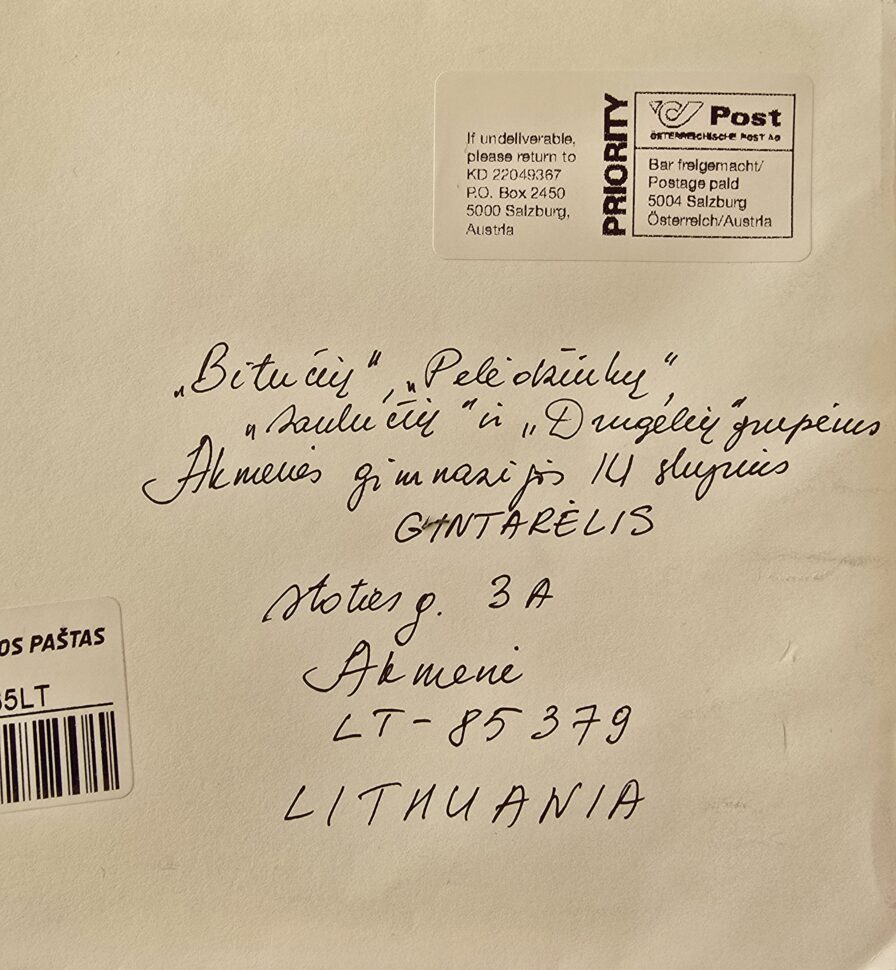 If undeliverable,
please return to
KD 22049367
P.O. Box 2450
5000 Salzburg,
Austria
PRIORITY
Post
ÖSTERREICHISCHE POST AG
Bar freigemacht/
Postage paid
5004 Salzburg
Österreich/Austria
„Bitučių“, „Pelėdžiukų“,
„Saulučių“ ir „Drugelių“ grupėms
Akmenės gimnazijos IU skyrius
GINTARĖLIS
Stoties g. 3A
Akmenė
LT-85379
LITHUANIA
OS PAŠTAS
5LT